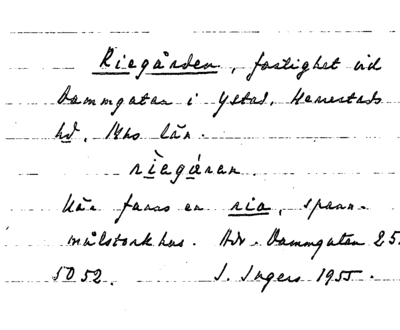 Riegården, fastighet vid
Dammgatan i Ystad, Herrestads
hd, Mhs län.
rìegáren.
Här fanns en ria, spann-
målstorkhus. Adr. Dammgatan 25.
5052. I. Ingers 1955.